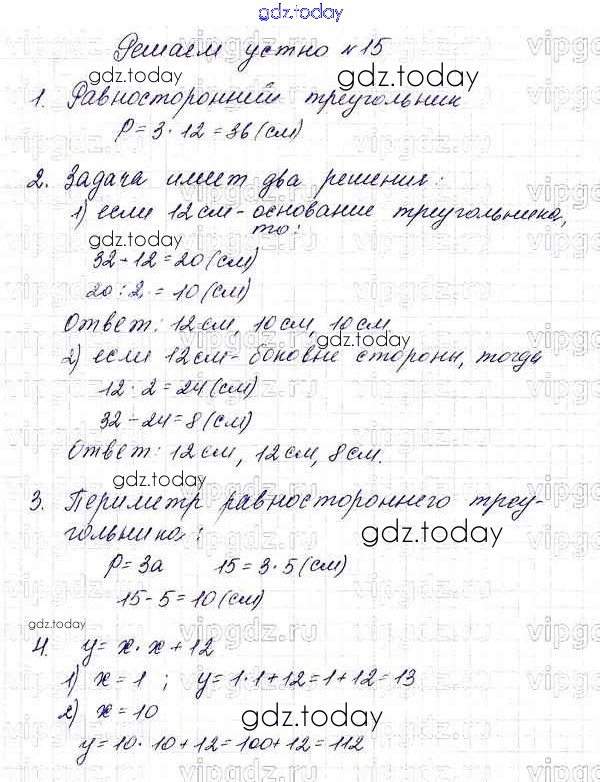 gdz.today
Решаем устно №15
gdz.today
1. Равносторонний треугольник
P = 3 · 12 = 36 (см)
2. Задача имеет два решения:
1) если 12 см - основание треугольника,
то:
gdz.today
32 - 12 = 20 (см)
20 : 2 = 10 (см)
Ответ: 12 см, 10 см, 10 см
gdz.today
2) если 12 см - боковые стороны, тогда
12 · 2 = 24 (см)
32 - 24 = 8 (см)
Ответ: 12 см, 12 см, 8 см.
gdz.today
3. Периметр равностороннего треу-
гольника:
gdz.today
P = 3a 15 = 3 · 5 (см)
15 - 5 = 10 (см)
gdz.today
4. y = x · x + 12
1) x = 1 ; y = 1 · 1 + 12 = 1 + 12 = 13
2) x = 10
gdz.today
y = 10 · 10 + 12 = 100 + 12 = 112